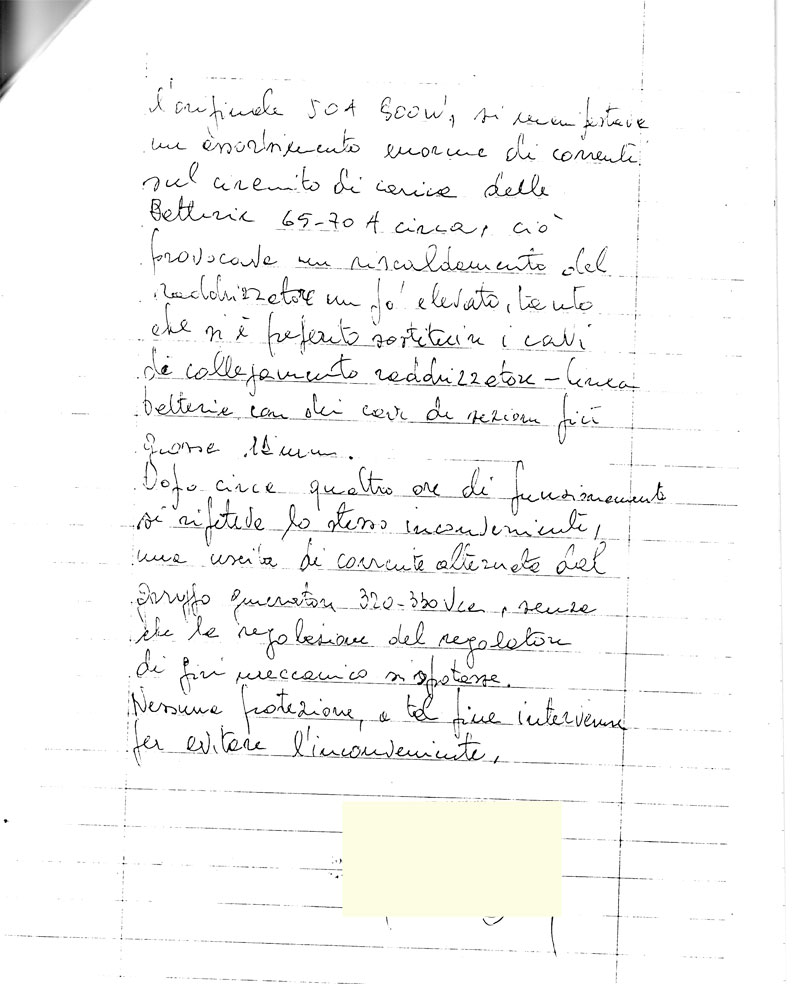 l'originale 50A 800W, si manifestava
un assorbimento enorme di corrente
sul circuito di carica delle
Batterie 65-70 A circa, ciò
provocava un riscaldamento del
raddrizzatore un po' elevato, tanto
che si è preferito sostituire i cavi
di collegamento raddrizzatore - linea
batterie con dei cavi di sezione più
grossa mm.
Dopo circa quattro ore di funzionamento
si ripeteva lo stesso inconveniente,
una uscita di corrente alternata dal
gruppo generatore 320-350Vca, senza
che la regolazione del regolatore
di giri meccanico si spostasse.
Nessuna protezione, a tal fine intervenne
per evitare l'inconveniente,